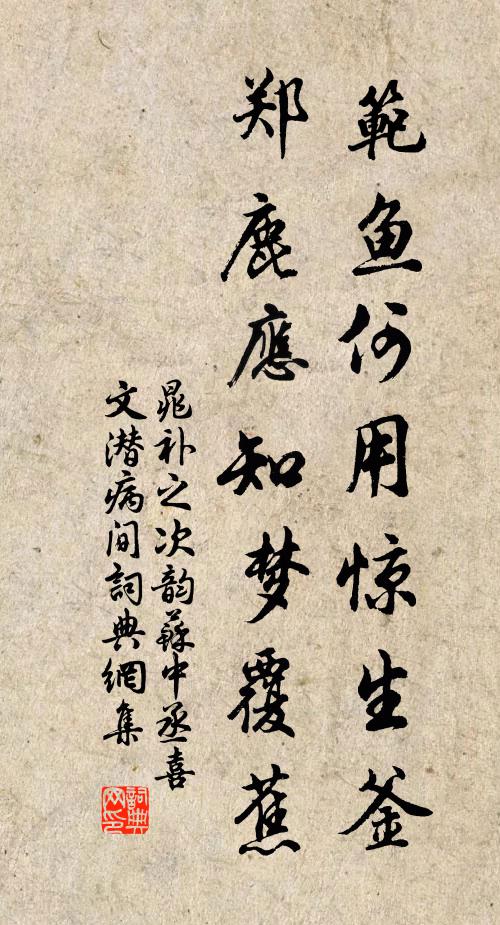 範鱼何用惊生釜
郑鹿應知梦覆蕉
晁补之次韵蘇中丞喜
文潜病间詞典網集
詞典
网印